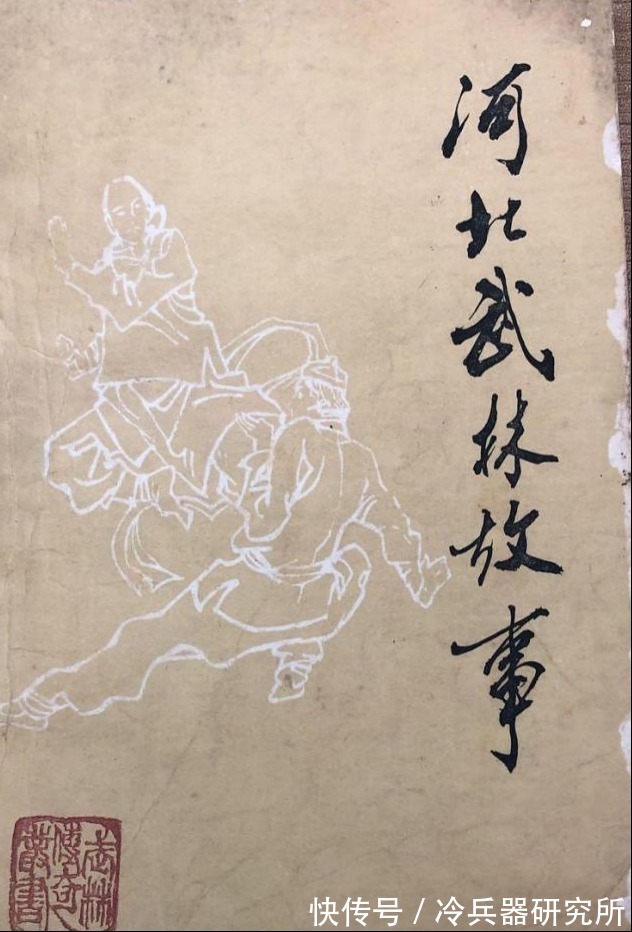 河北武林故事
武林
傳奇
叢書
快传号 / 冷兵器研究所